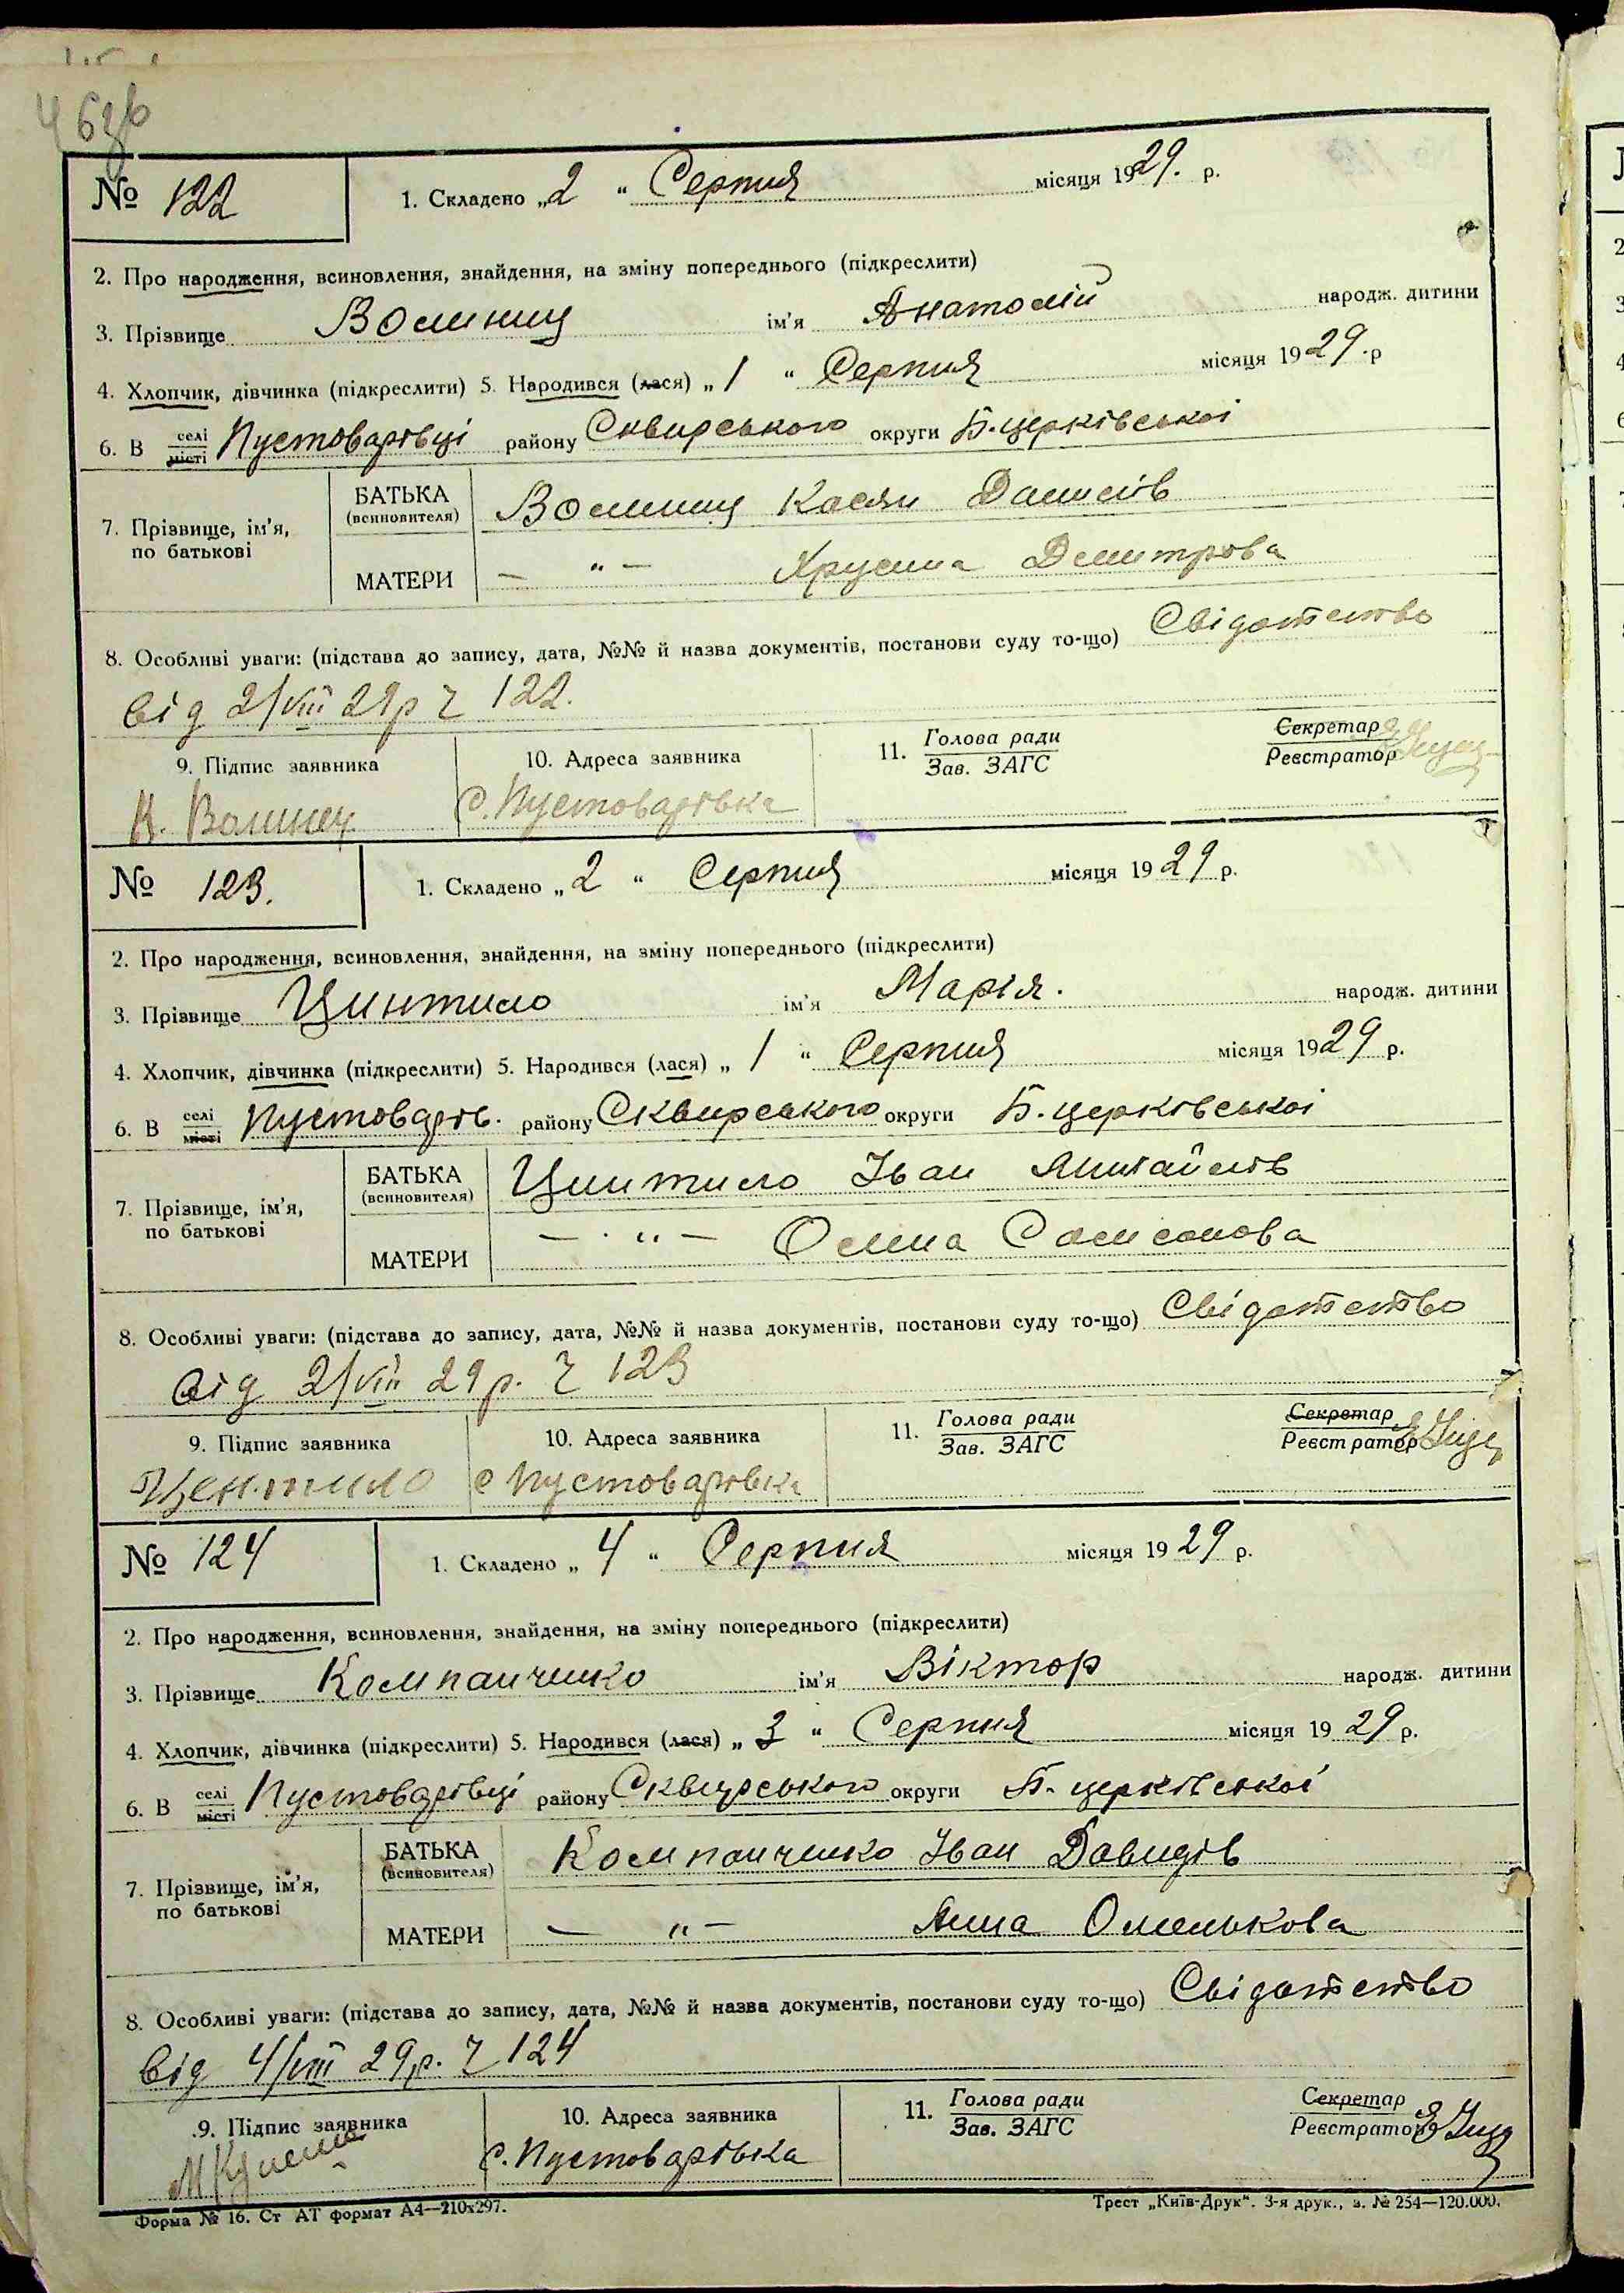 46зв
№ 122
1. Складено „2 “ Серпня місяця 1929. р.
2. Про народження, всиновлення, знайдення, на зміну попереднього (підкреслити)
3. Прізвище Волинец ім'я Анатолій народж. дитини
4. Хлопчик, дівчинка (підкреслити) 5. Народився (лася) „ 1 “ Серпня місяця 1929 .р
6. В селі місті Пустоварівці району Сквирського округи Б.церківської
7. Прізвище, ім'я, по батькові
БАТЬКА (всиновителя) Волинец Касян Данилів
МАТЕРИ — “ — Хрусина Демитрова
8. Особливі уваги: (підстава до запису, дата, №№ й назва документів, постанови суду то-що) Свідотство
від 2/VIII 29р ч 122.
9. Підпис заявника 10. Адреса заявника 11. Голова ради Зав. ЗАГС Секретар Реєстратор
К. Волинец с. Пустоварівка
№ 123.
1. Складено „ 2 “ Серпня місяця 19 29 р.
2. Про народження, всиновлення, знайдення, на зміну попереднього (підкреслити)
3. Прізвище Цинтило ім'я Марія. народж. дитини
4. Хлопчик, дівчинка (підкреслити) 5. Народився (лася) „ 1 “ Серпня місяця 1929 р.
6. В селі місті Пустоварів. району Сквирського округи Б. церківської
7. Прізвище, ім'я, по батькові
БАТЬКА (всиновителя) Цинтило Іван Михайлів
МАТЕРИ — “ — Олина Самсонова
8. Особливі уваги: (підстава до запису, дата, №№ й назва документів, постанови суду то-що) Свідотство
від 2/VIII 29р. ч 123
9. Підпис заявника 10. Адреса заявника 11. Голова ради Зав. ЗАГС Секретар Реєстратор
Центило с Пустоварівка
№ 124
1. Складено „ 4 “ Серпня місяця 19 29 р.
2. Про народження, всиновлення, знайдення, на зміну попереднього (підкреслити)
3. Прізвище Компанченко ім'я Віктор народж. дитини
4. Хлопчик, дівчинка (підкреслити) 5. Народився (лася) „ 3 “ Серпня місяця 19 29 р.
6. В селі місті Пустоварівці району Сквирського округи Б. церківської
7. Прізвище, ім'я, по батькові
БАТЬКА (всиновителя) Компанченко Іван Давидів
МАТЕРИ — “ — Анна Омелькова
8. Особливі уваги: (підстава до запису, дата, №№ й назва документів, постанови суду то-що) Свідотство
від 4/VIII 29р. ч 124
9. Підпис заявника 10. Адреса заявника 11. Голова ради Зав. ЗАГС Секретар Реєстратор
с. Пустоварівка
Форма № 16. Ст АТ формат А4—210х297. Трест „Київ-Друк“. 3-я друк., з. № 254—120.000.